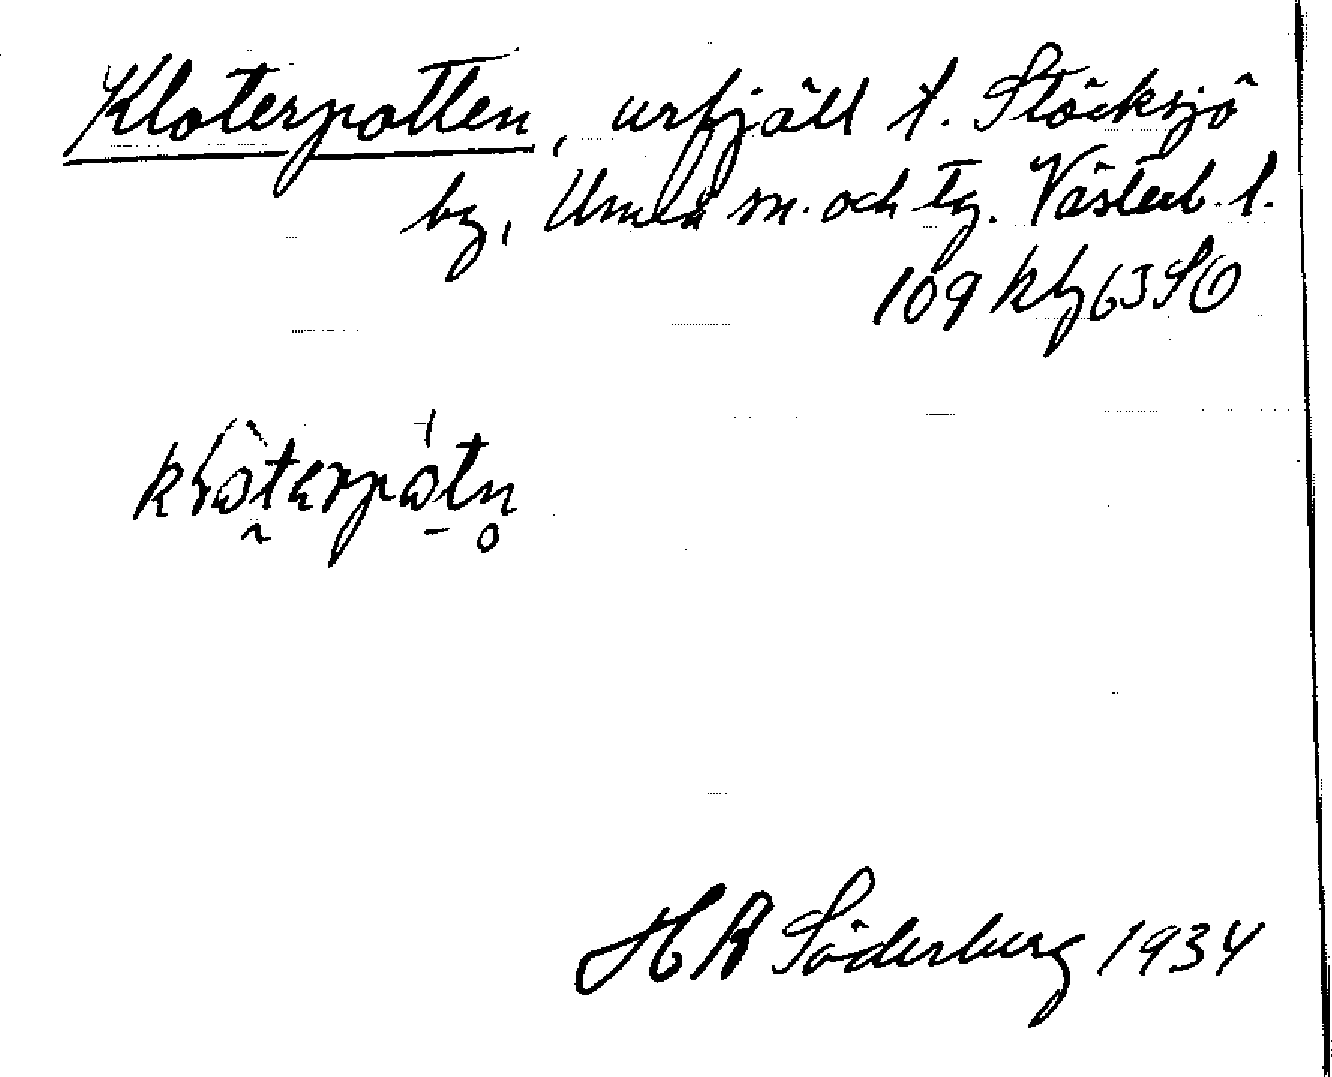 Kloterpotten, urfjäll t. Stöcksjö
by, Umeå sn. och tg. Västerb. l.
109 kbl 63 SO
H R Söderberg 1934